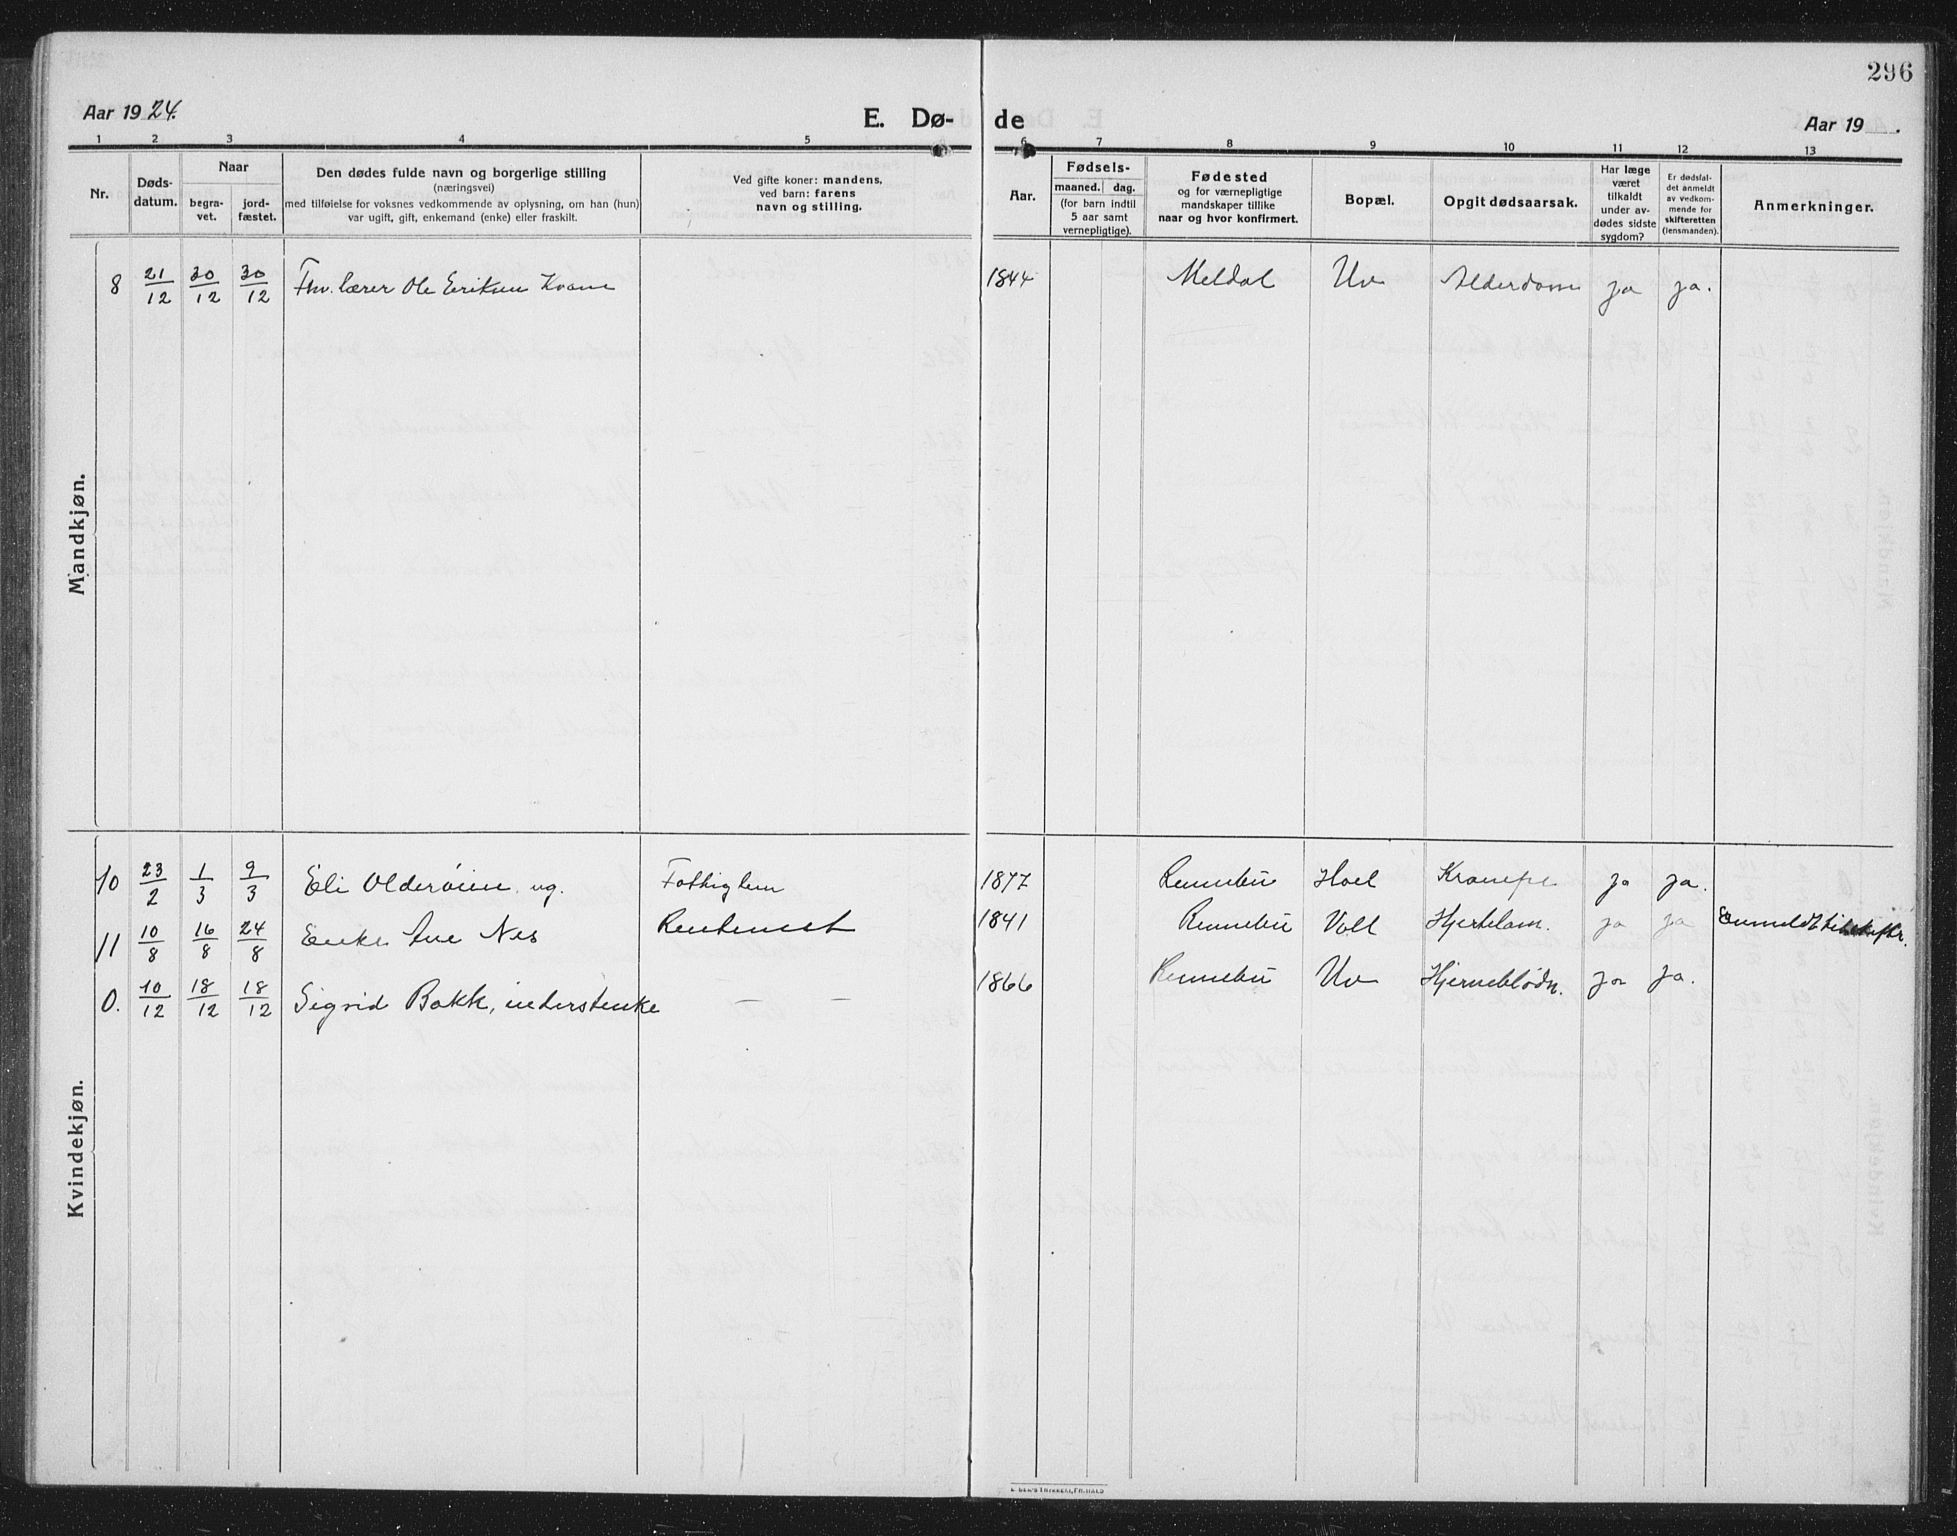 296
Aar 1924.
E. Dø-
de
Aar 19 .
1 2 3 4 5 6 7 8 9 10 11 12 13
Nr.
Døds-
datum.
Naar
begra-
vet.
jord-
fæstet.
Den dødes fulde navn og borgerlige stilling
(næringsvei)
med tilføielse for voksnes vedkommende av oplysning, om han (hun)
var ugift, gift, enkemand (enke) eller fraskilt.
Ved gifte koner: mandens,
ved barn: farens
navn og stilling.
Aar.
Fødsels-
maaned. dag.
(for barn indtil
5 aar samt
vernepligtige).
Fødested
og for værnepligtige
mandskaper tillike
naar og hvor konfirmert.
Bopæl.
Opgit dødsaarsak.
Har læge
været
tilkaldt
under av-
dødes sidste
sygdom?
Er dødsfal-
det anmeldt
av vedkom-
mende for
skifteretten
(lensmanden).
Anmerkninger.
Mandkjøn.
8 21/12 30/12 30/12 Fhv. lærer Ole Eriksen Kvam 1844 Meldal Uv Alderdom ja ja.
Kvindekjøn.
10 23/2 1/3 9/3 Eli Olderøien ug. Fattiglem 1877 Rennebu Hoel Krampe ja ja.
11 10/8 16/8 24/8 Enke Ane Nes 1841 Rennebu Voll Hjertelam. ja ja
0. 10/12 18/12 18/12 Sigrid Bakk, inderstenke — — 1866 Rennebu Uv Hjerneblødn. ja ja.